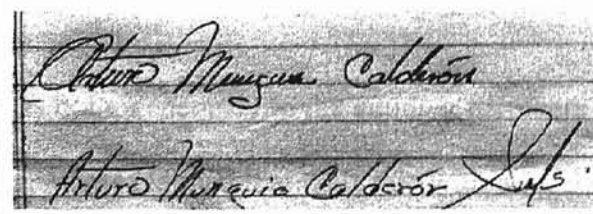 Arturo Munguia Calderón
Arturo Munguia Calderón